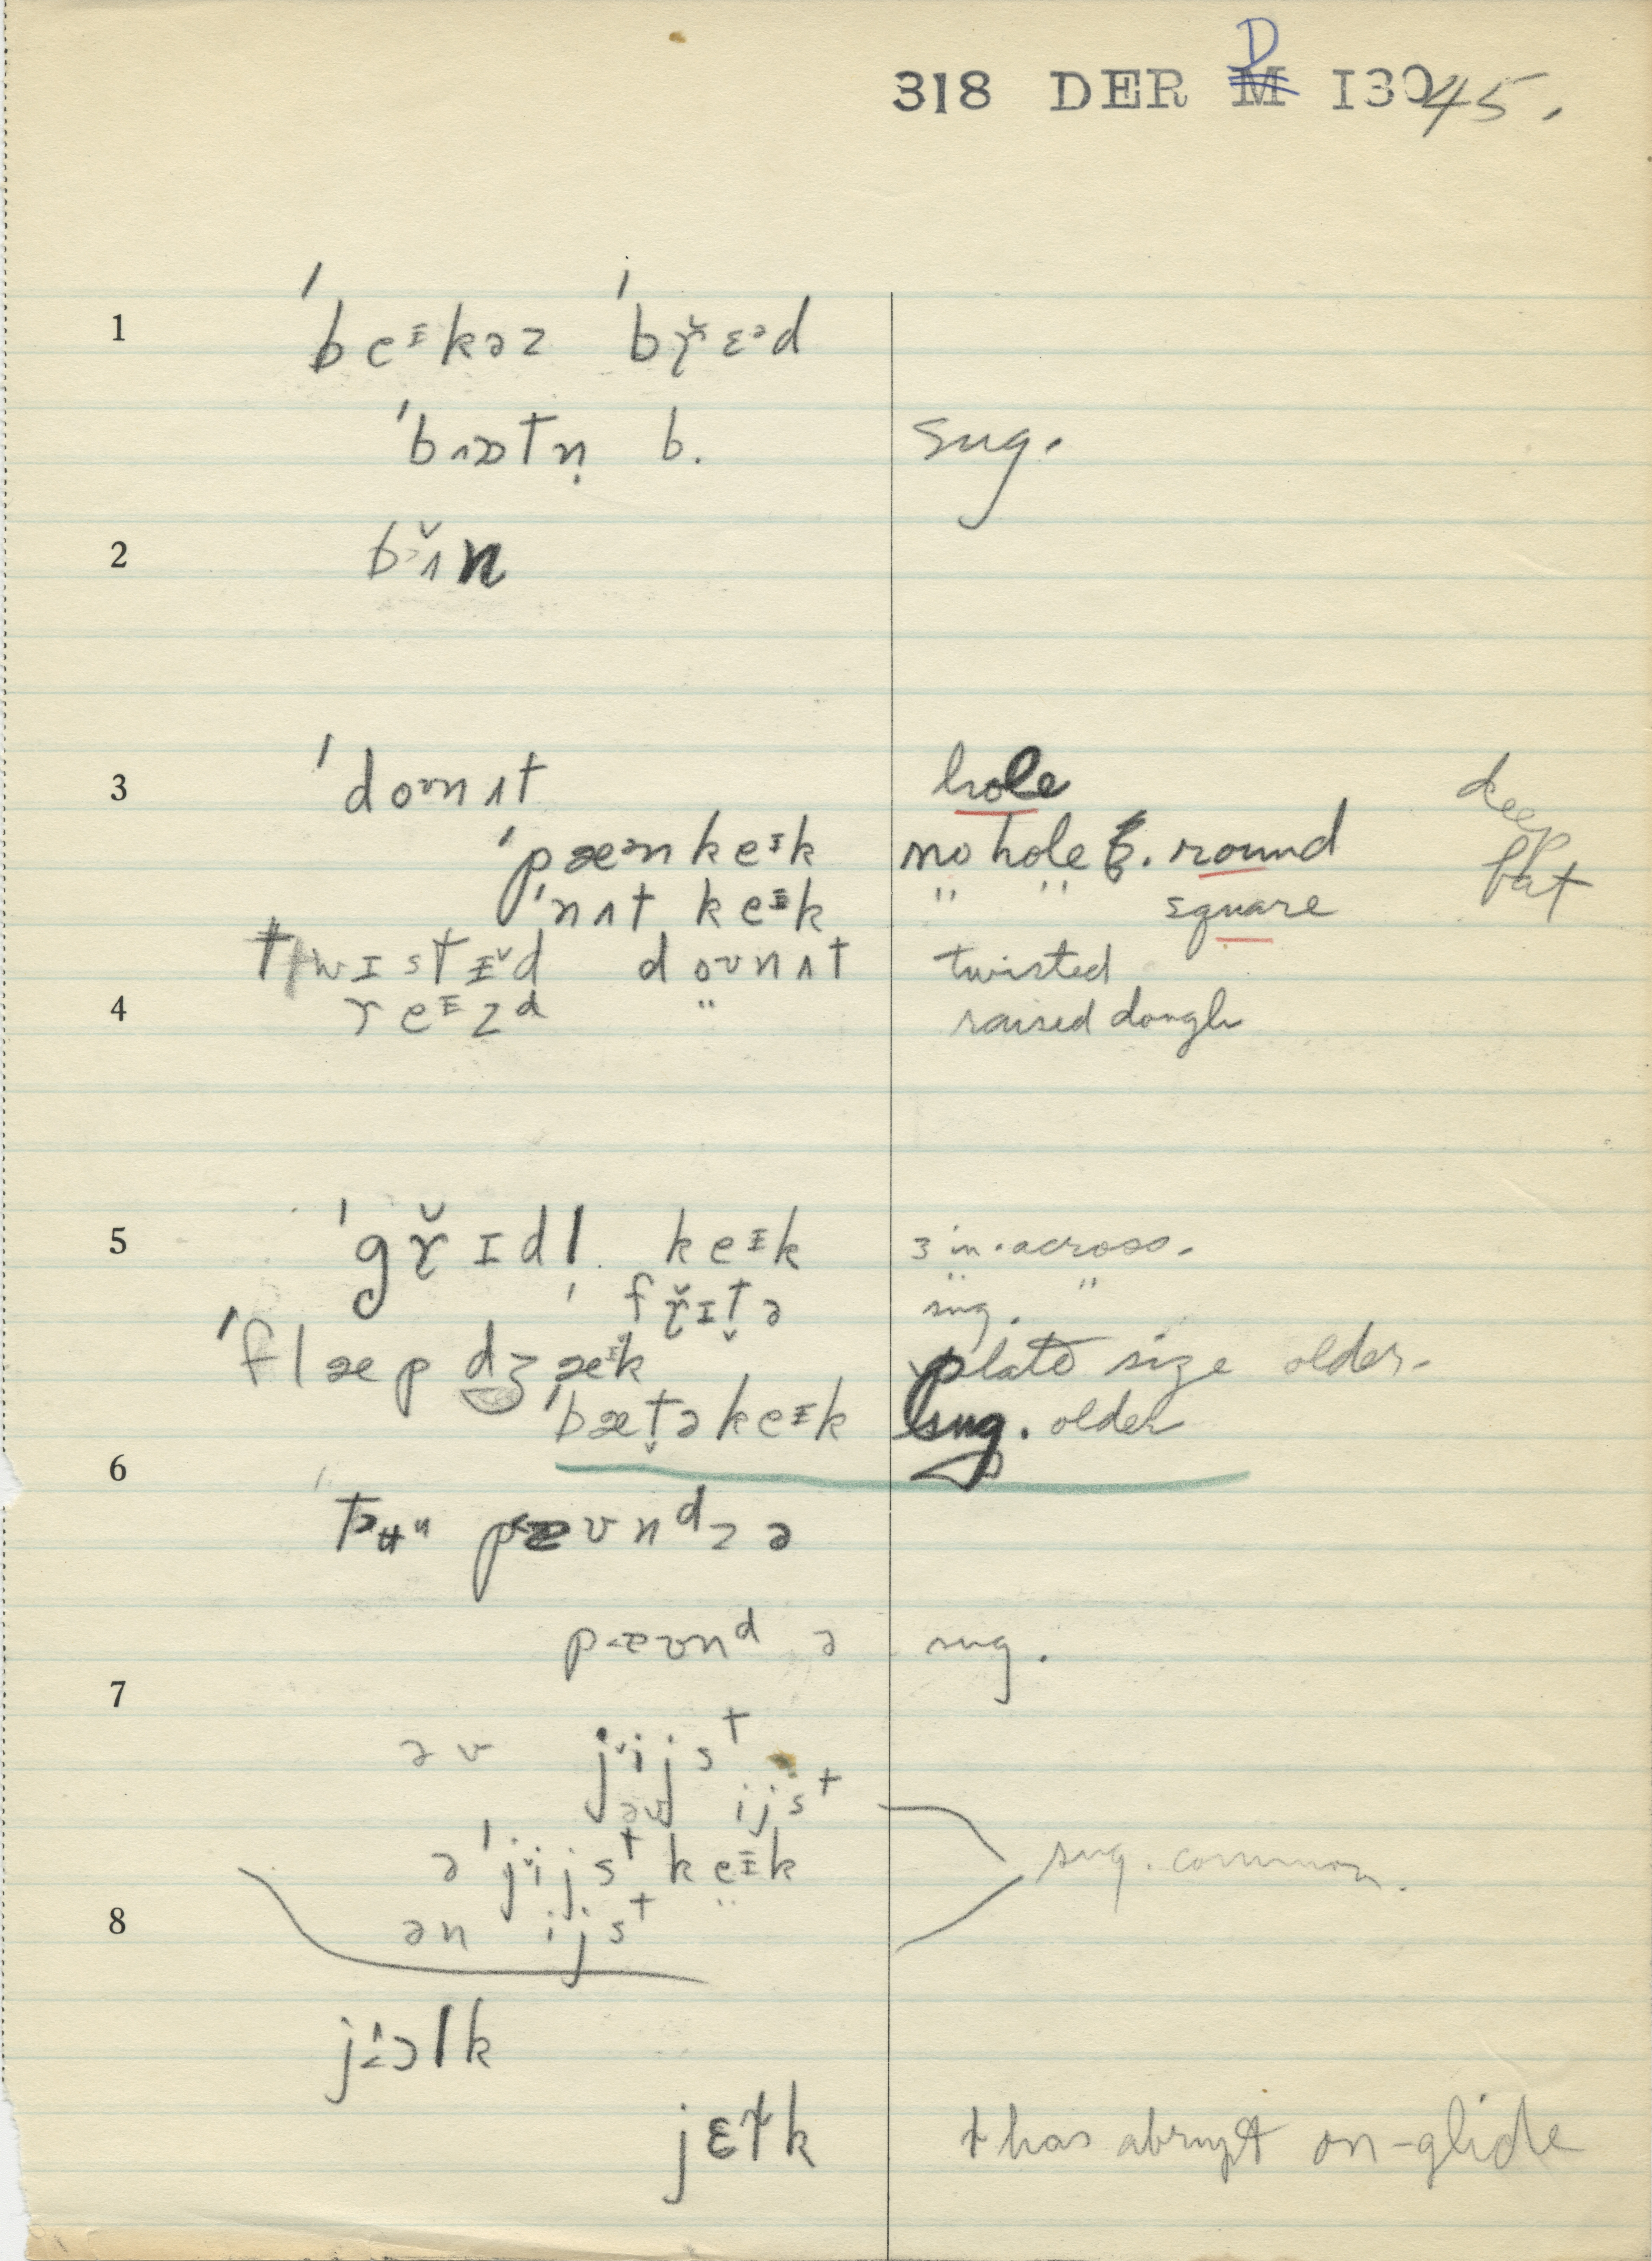 318 DER D M I3045.
1 ˈbeᴵkəz ˈbɣ̆ɛᵊd
ˈbɪɒtn̩ b. sug.
2
3 ˈdoʊnʌt hole deep fat
ˈpæᵊnkeᴵk no hole b. round
ˈnʌt keᴵk " " square
twɪstɪ̆d doʊnʌt twisted
4 reᴵzd " raised dough
5 ˈgɣ̆ɪdl keᴵk 3 in. across.
ˈfɣ̆ɪt̬ə sug. "
ˈflæpdʒæᴵk plate size older.
ˈbæt̬əkeᴵk sug. older
6
pæʊnᵈz ə
pæʊnᵈ ə sug.
7
əv jijsᵗ
əv ijsᵗ
əˈjijsᵗ keᴵk sug. common.
8 ən ijsᵗ
jɛɫk ɫ has abrupt on-glide